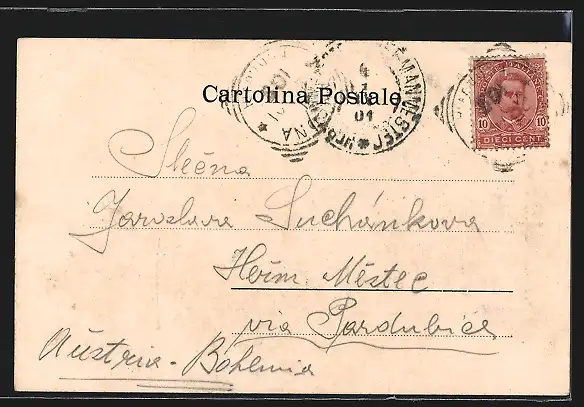 Cartolina Postale
10 10
DIECI CENT.
HEŘMANMĚSTEC
4
1
01
Slečna
Jaroslava Suchánkova
Heřm. Městec
via Pardubice
Austria - Bohemia